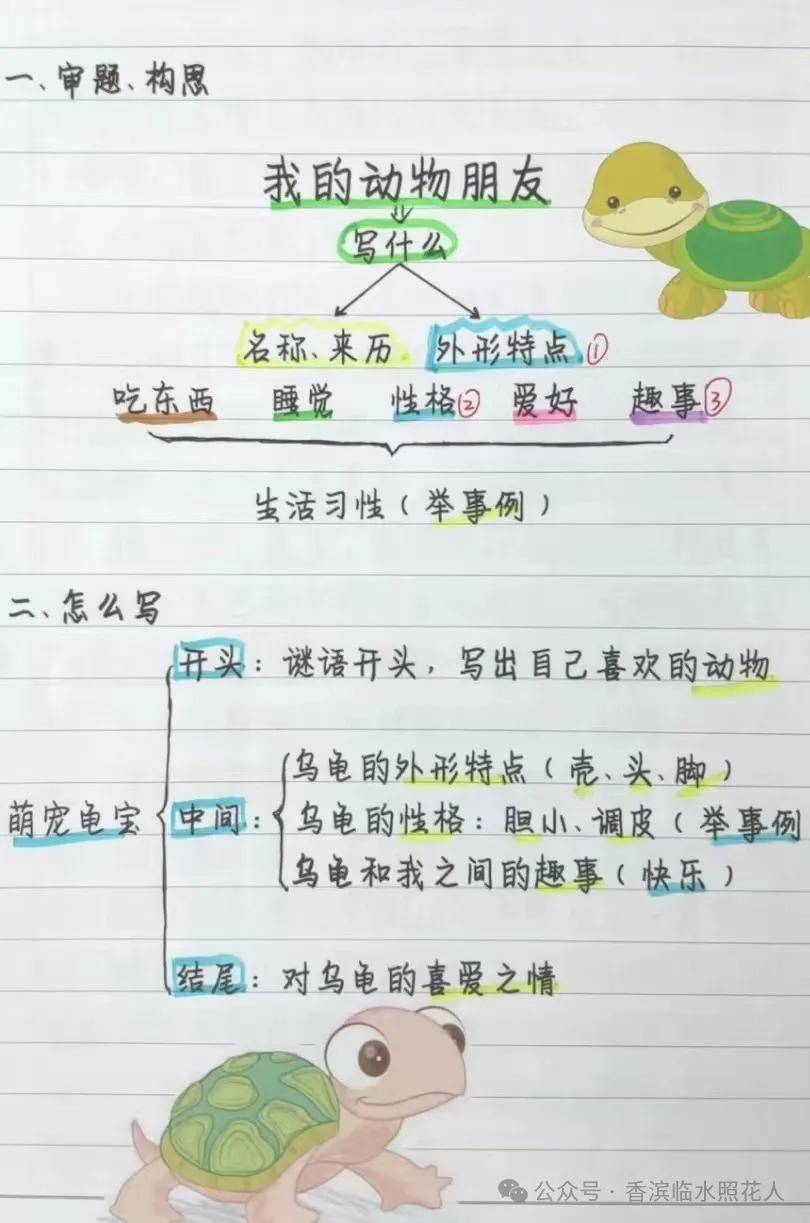 一、审题、构思
我的动物朋友
写什么
名称、来历 外形特点①
吃东西 睡觉 性格② 爱好 趣事③
生活习性（举事例）
二、怎么写
开头：谜语开头，写出自己喜欢的动物
乌龟的外形特点（壳、头、脚）
萌宠龟宝 中间： 乌龟的性格：胆小、调皮（举事例
乌龟和我之间的趣事（快乐）
结尾：对乌龟的喜爱之情
公众号·香滨临水照花人